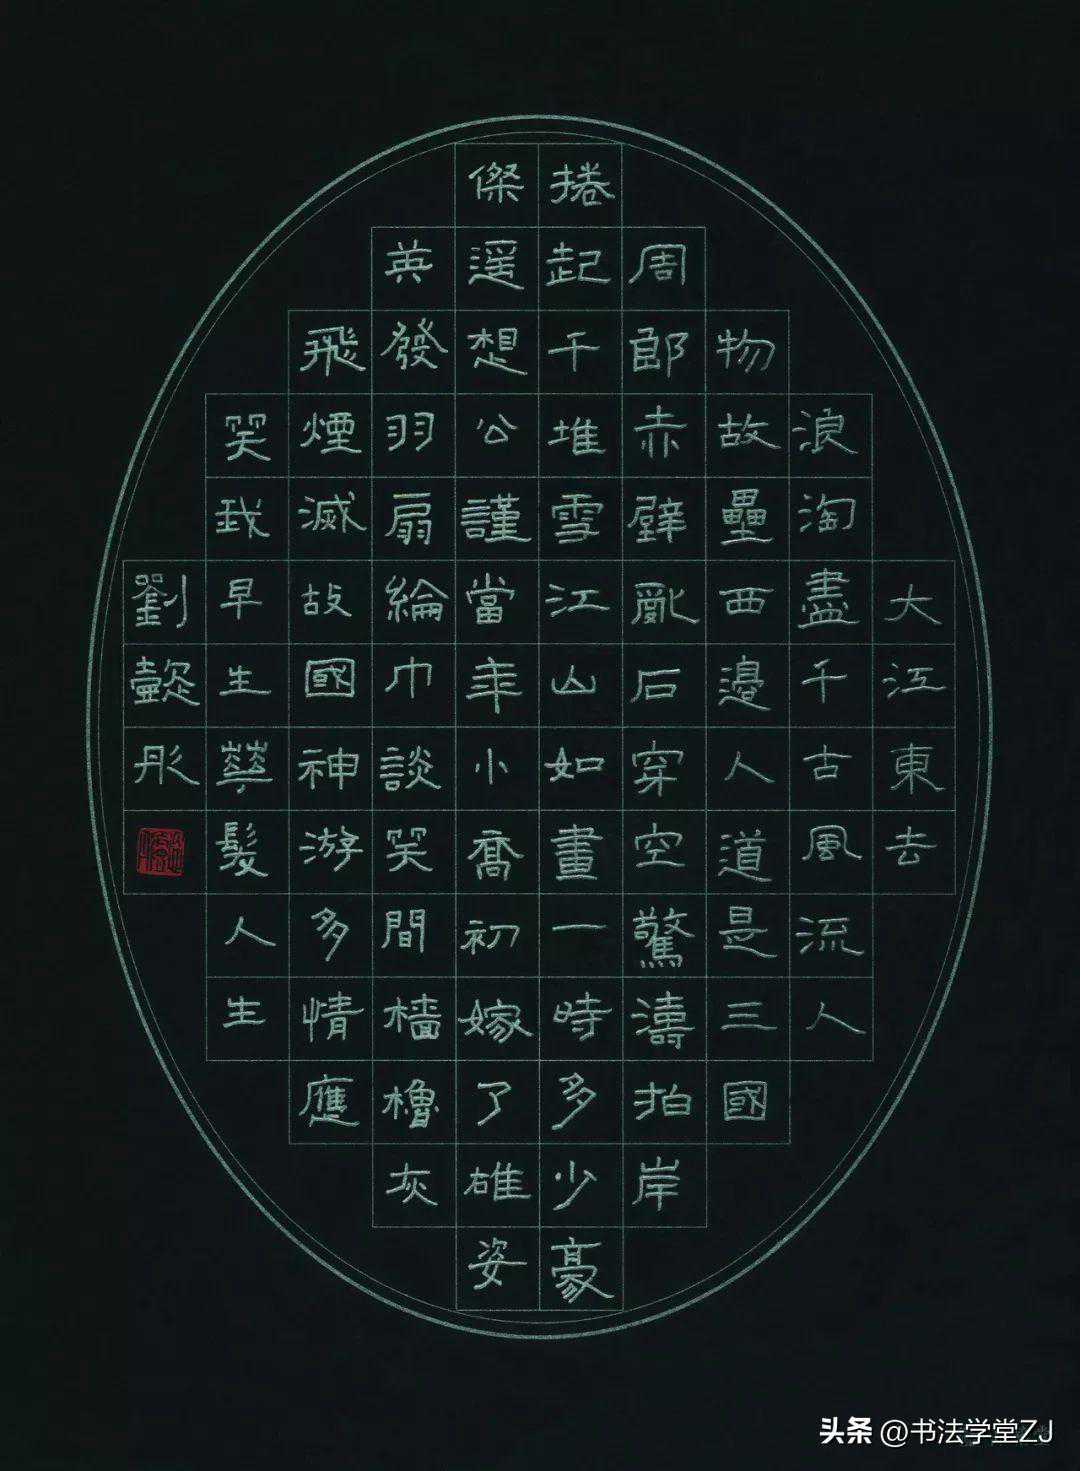 大江東去
浪淘盡千古風流人
物故壘西邊人道是三國
周郎赤壁亂石穿空驚濤拍岸
捲起千堆雪江山如畫一時多少豪
傑遥想公謹當年小喬初嫁了雄姿
英發羽扇綸巾談笑間檣櫓灰
飛煙滅故國神游多情應
笑我早生華髮人生
劉懿彤
头条 @书法学堂ZJ